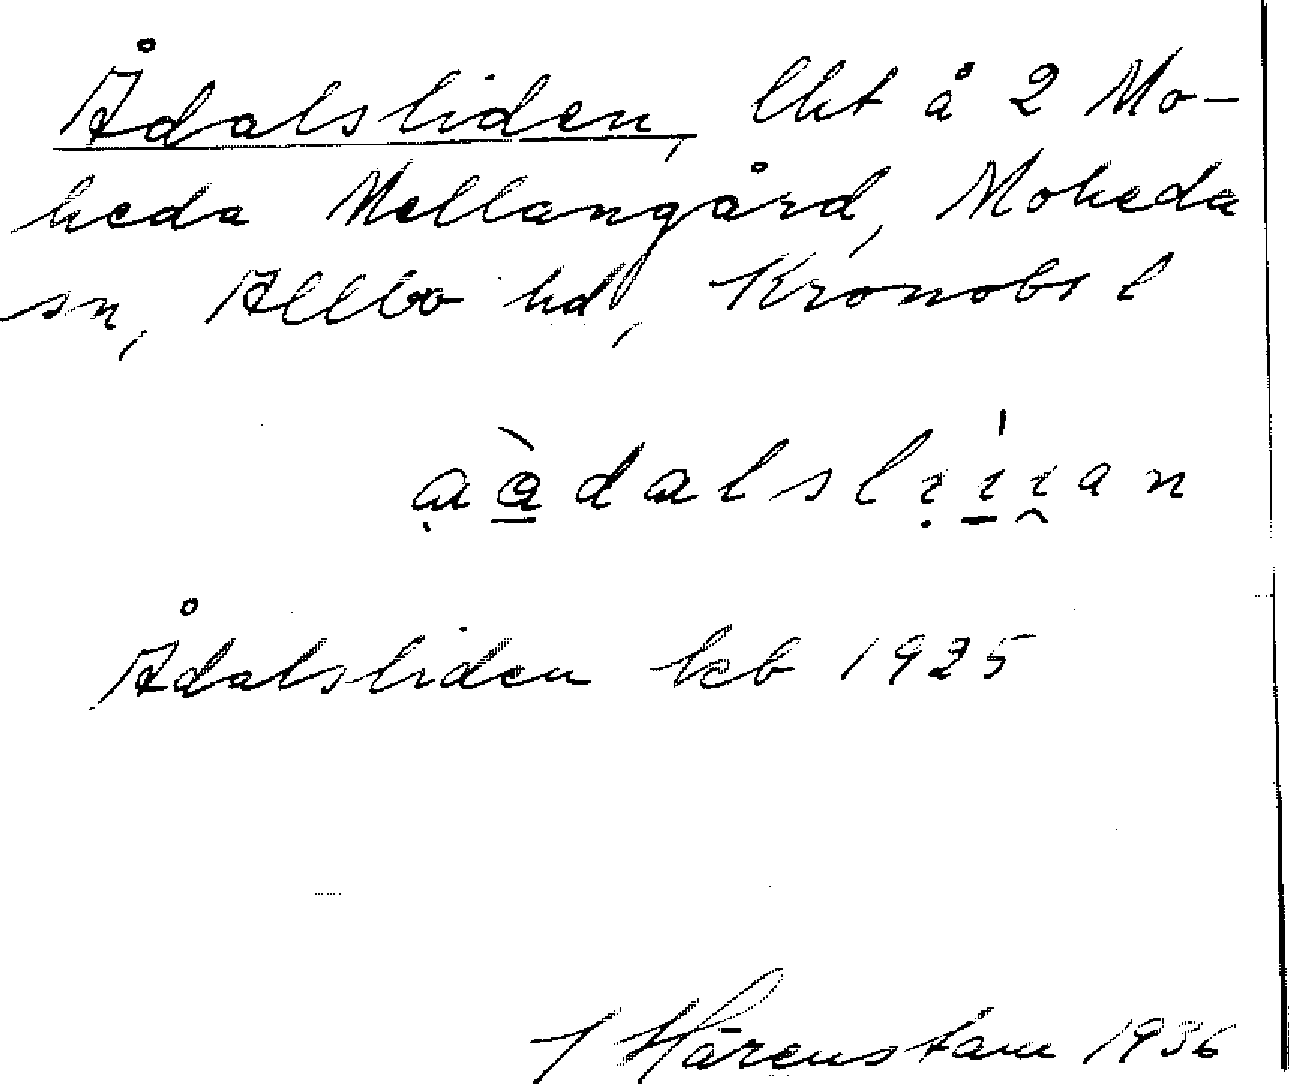 Ådalsliden, lht å 2 Mo-
heda Mellangård, Moheda
sn, Allbo hd, Kronobs l
Ådalsliden kcb 1925
J Hårenstam 1936